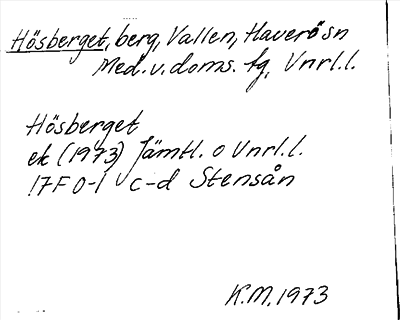 Hösberget, berg, Vallen, Haverö sn
Med. v. doms. fg, Vnrl.l.
Hösberget
ek (1973) Jämtl. o Vnrl.l.
17F 0-1 c-d Stensån
K.M. 1973